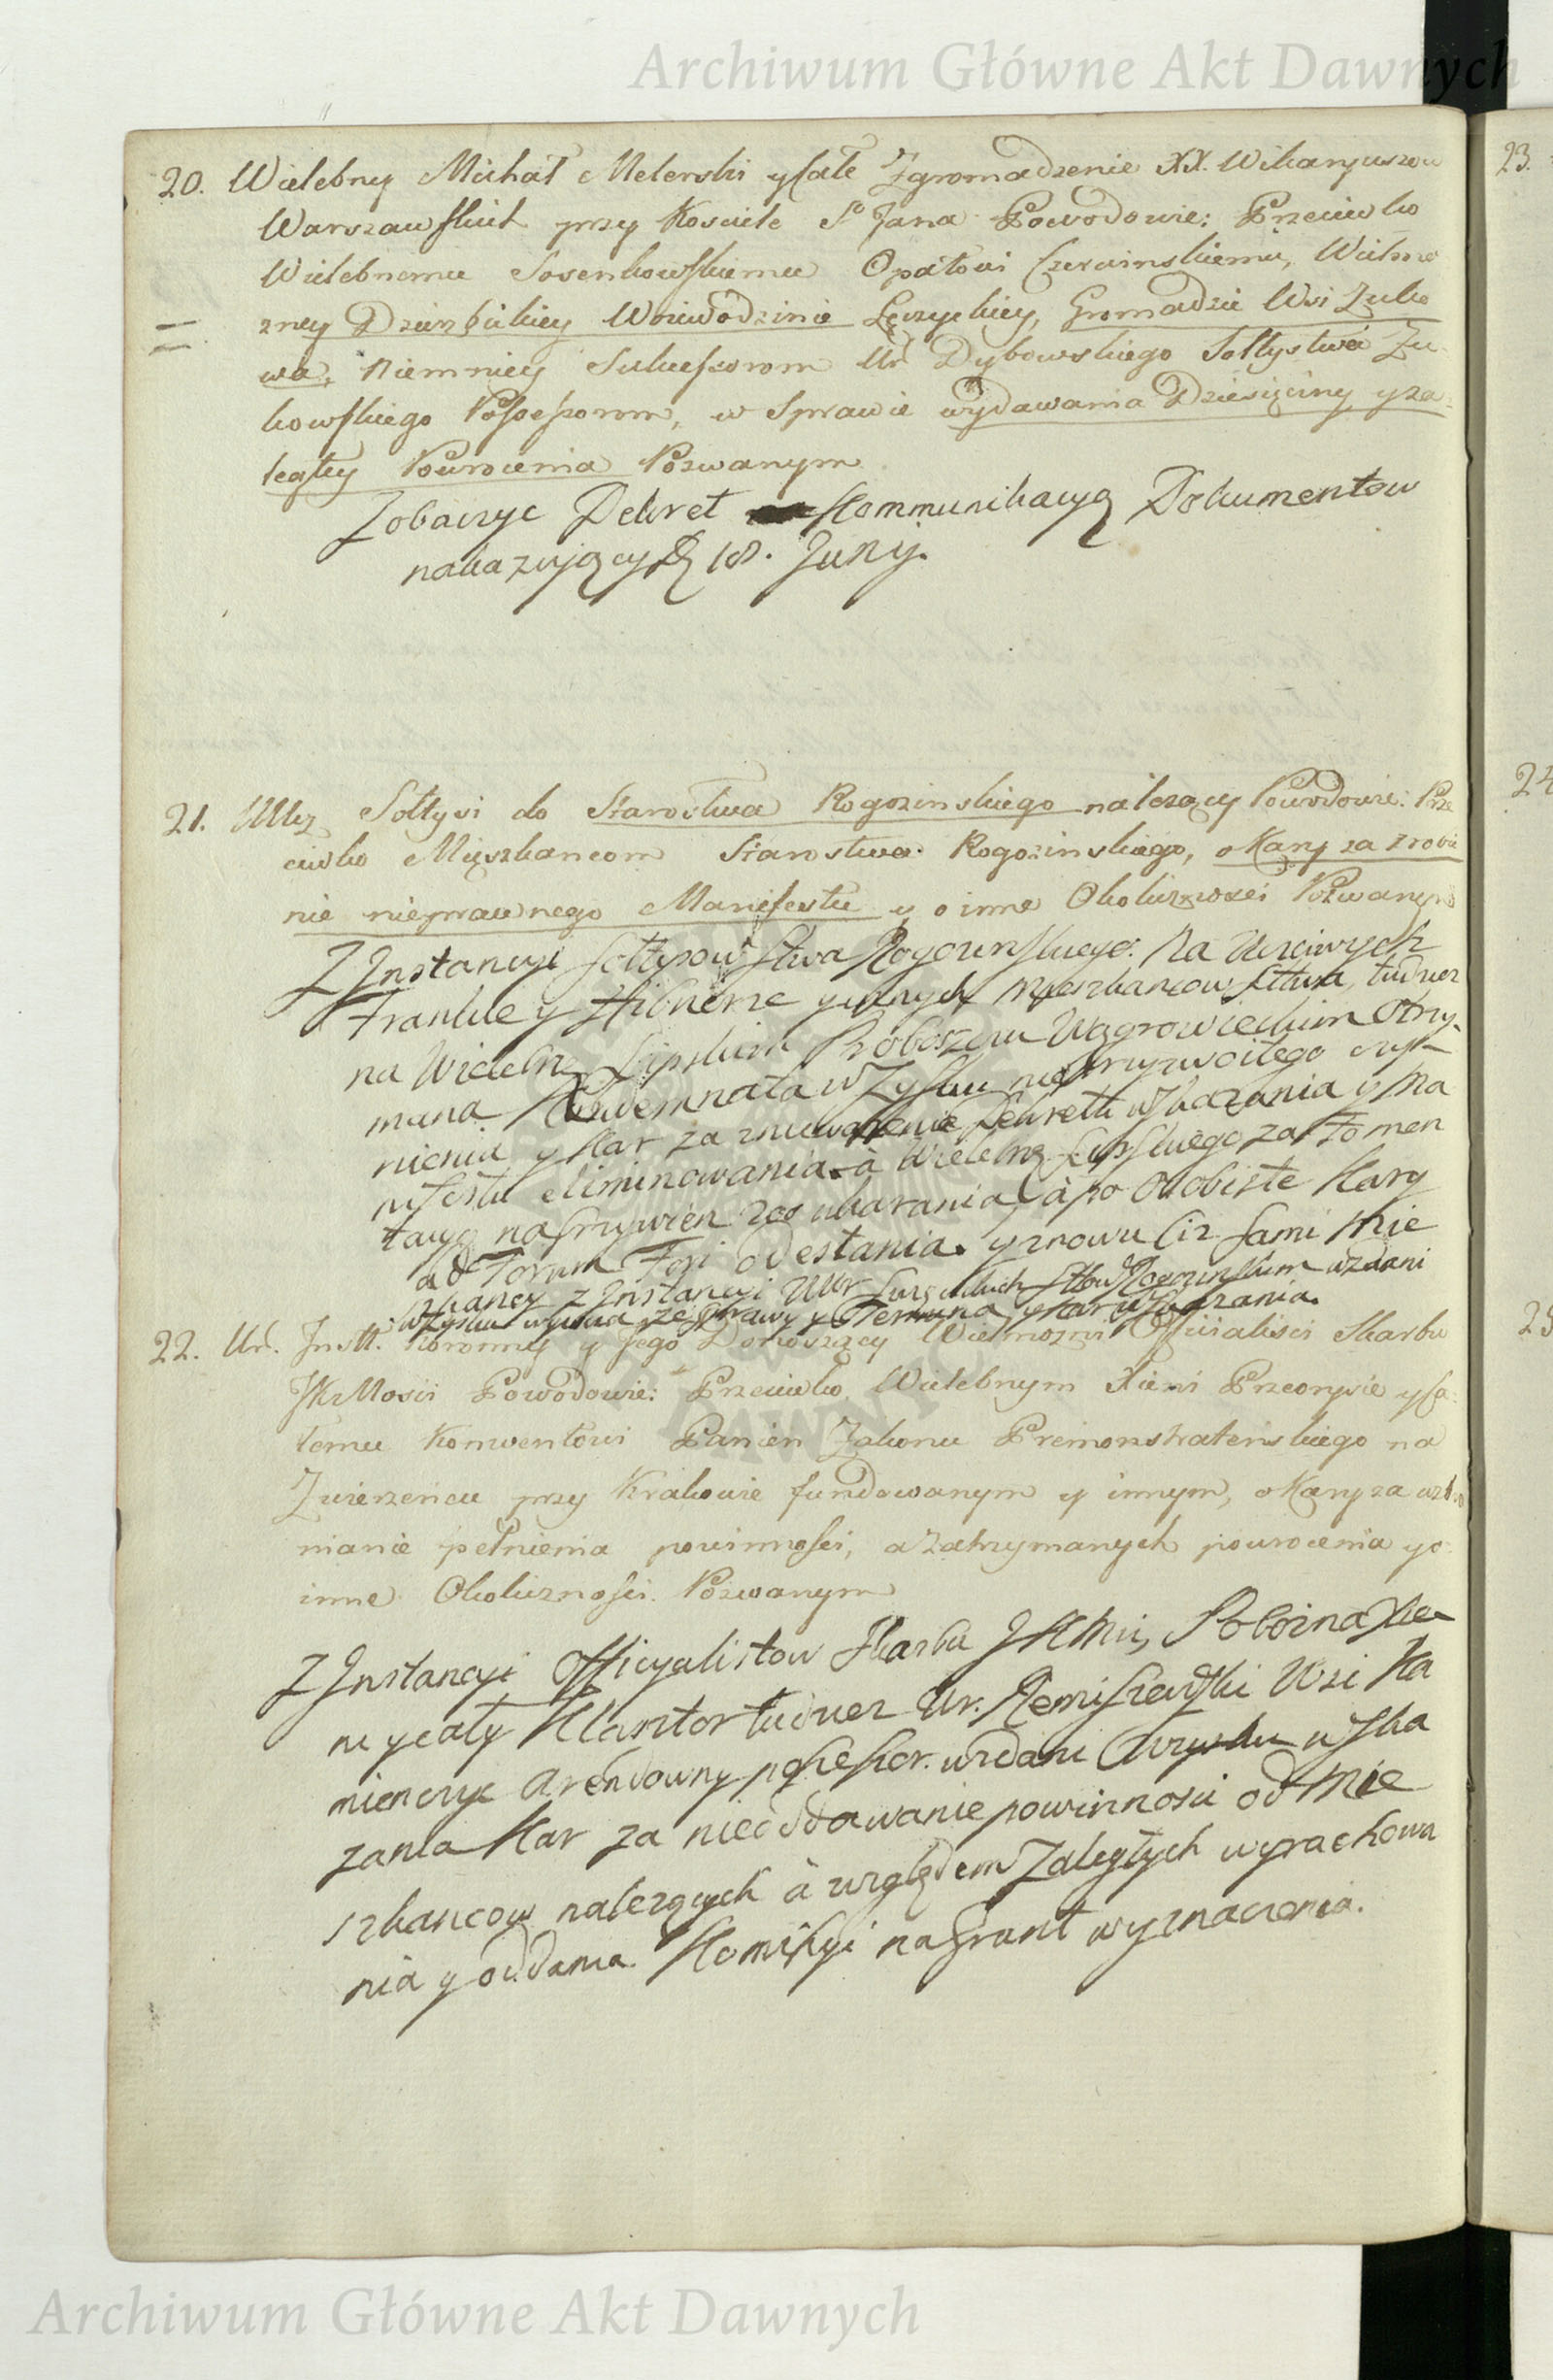 Archiwum Główne Akt Dawnych
20. Wielebny Michał Melerski y całe Zgromadzenie XX. Wikaryuszow
Warszawskich przy Kosciele Sgo Jana Powodowie: Przeciwko
Wielebnemu Sosenkowskiemu Opatowi Czerwinskiemu, Wielmo
zney Dzierzbickiey Woiewodzinie Łęczyckiey, Gromadzie Wsi Zuko
wa, niemniey Sukcessorom Ur. Dybowskiego Sołtystwa Zu-
kowskiego Possessorom, w Sprawie wydawania Dziesięciny y za-
ległey Powrocenia Pozwanym
Zobaczyc Dekret Kommunikacyą Dokumentow
nakazuiący D. 18. Junij.
21. Ulcz Sołtysi do Starostwa Rogozinskiego należący Powodowie: Prze
ciwko Mieszkancom Starostwa Rogozinskiego, o Kary za zrobie
nie nieprawnego Manifestu y o inne Okoliczności Pozwanym
Z Instancyi Sołtysow Stwa Rogozinskiego. Na Uczciwych
Franke y Hibnerze y innych Mieszkancow Sttwa, tudziez
na Wielebn. Lipskim Proboszczu Wągrowieckim Otrzy-
mana Kondemnata w Zysku nieprzyzwoitego czy-
nienia y Kar za znieważenie Dekretu wskazania y Ma
nifestu eliminowania à Wielebn. Lipskiego za Fomen
tacyą na Grzywien 200 ukarania à po Osobiste Kary
ad Forum Fori odesłania. y znowu Ciz sami Mie
szkancy z Instancyi Ur. Stwa Rogozinskim wzdani
w Zysku upadku ze sprawy y Terminu y Kar wskazania.
22. Ur. Instt. Koronny y Jego Donoszący Wielmozni Officialisci Skarbu
JKr Mosci Powodowie: Przeciwko Wielebnym Xieni Przeoryszie y ca-
łemu Konwentowi Panien Zakonu Premonstratenskiego na
Zwierzencu przy Krakowie fundowanym y innym, o Kary za wzbro
nianie pełnienia powinnosci, a zatrzymanych powrocenia y o
inne Okolicznosci Pozwanym
Z Instancyi Officyalistow Skarbu JKMci, Pobożna Xie-
ni y cały Klasztor tudziez Ur. Remiszewski Wsi Ka
mienczyc Arendowny possessor. wzdani w zysku wska
zania Kar za nieoddawanie powinnosci od Mie
szkancow należących à względem Zaległych wyrachowa
nia y oddania. Komissyi na Grunt wyznaczenia.
23.
24
25
Archiwum Główne Akt Dawnych